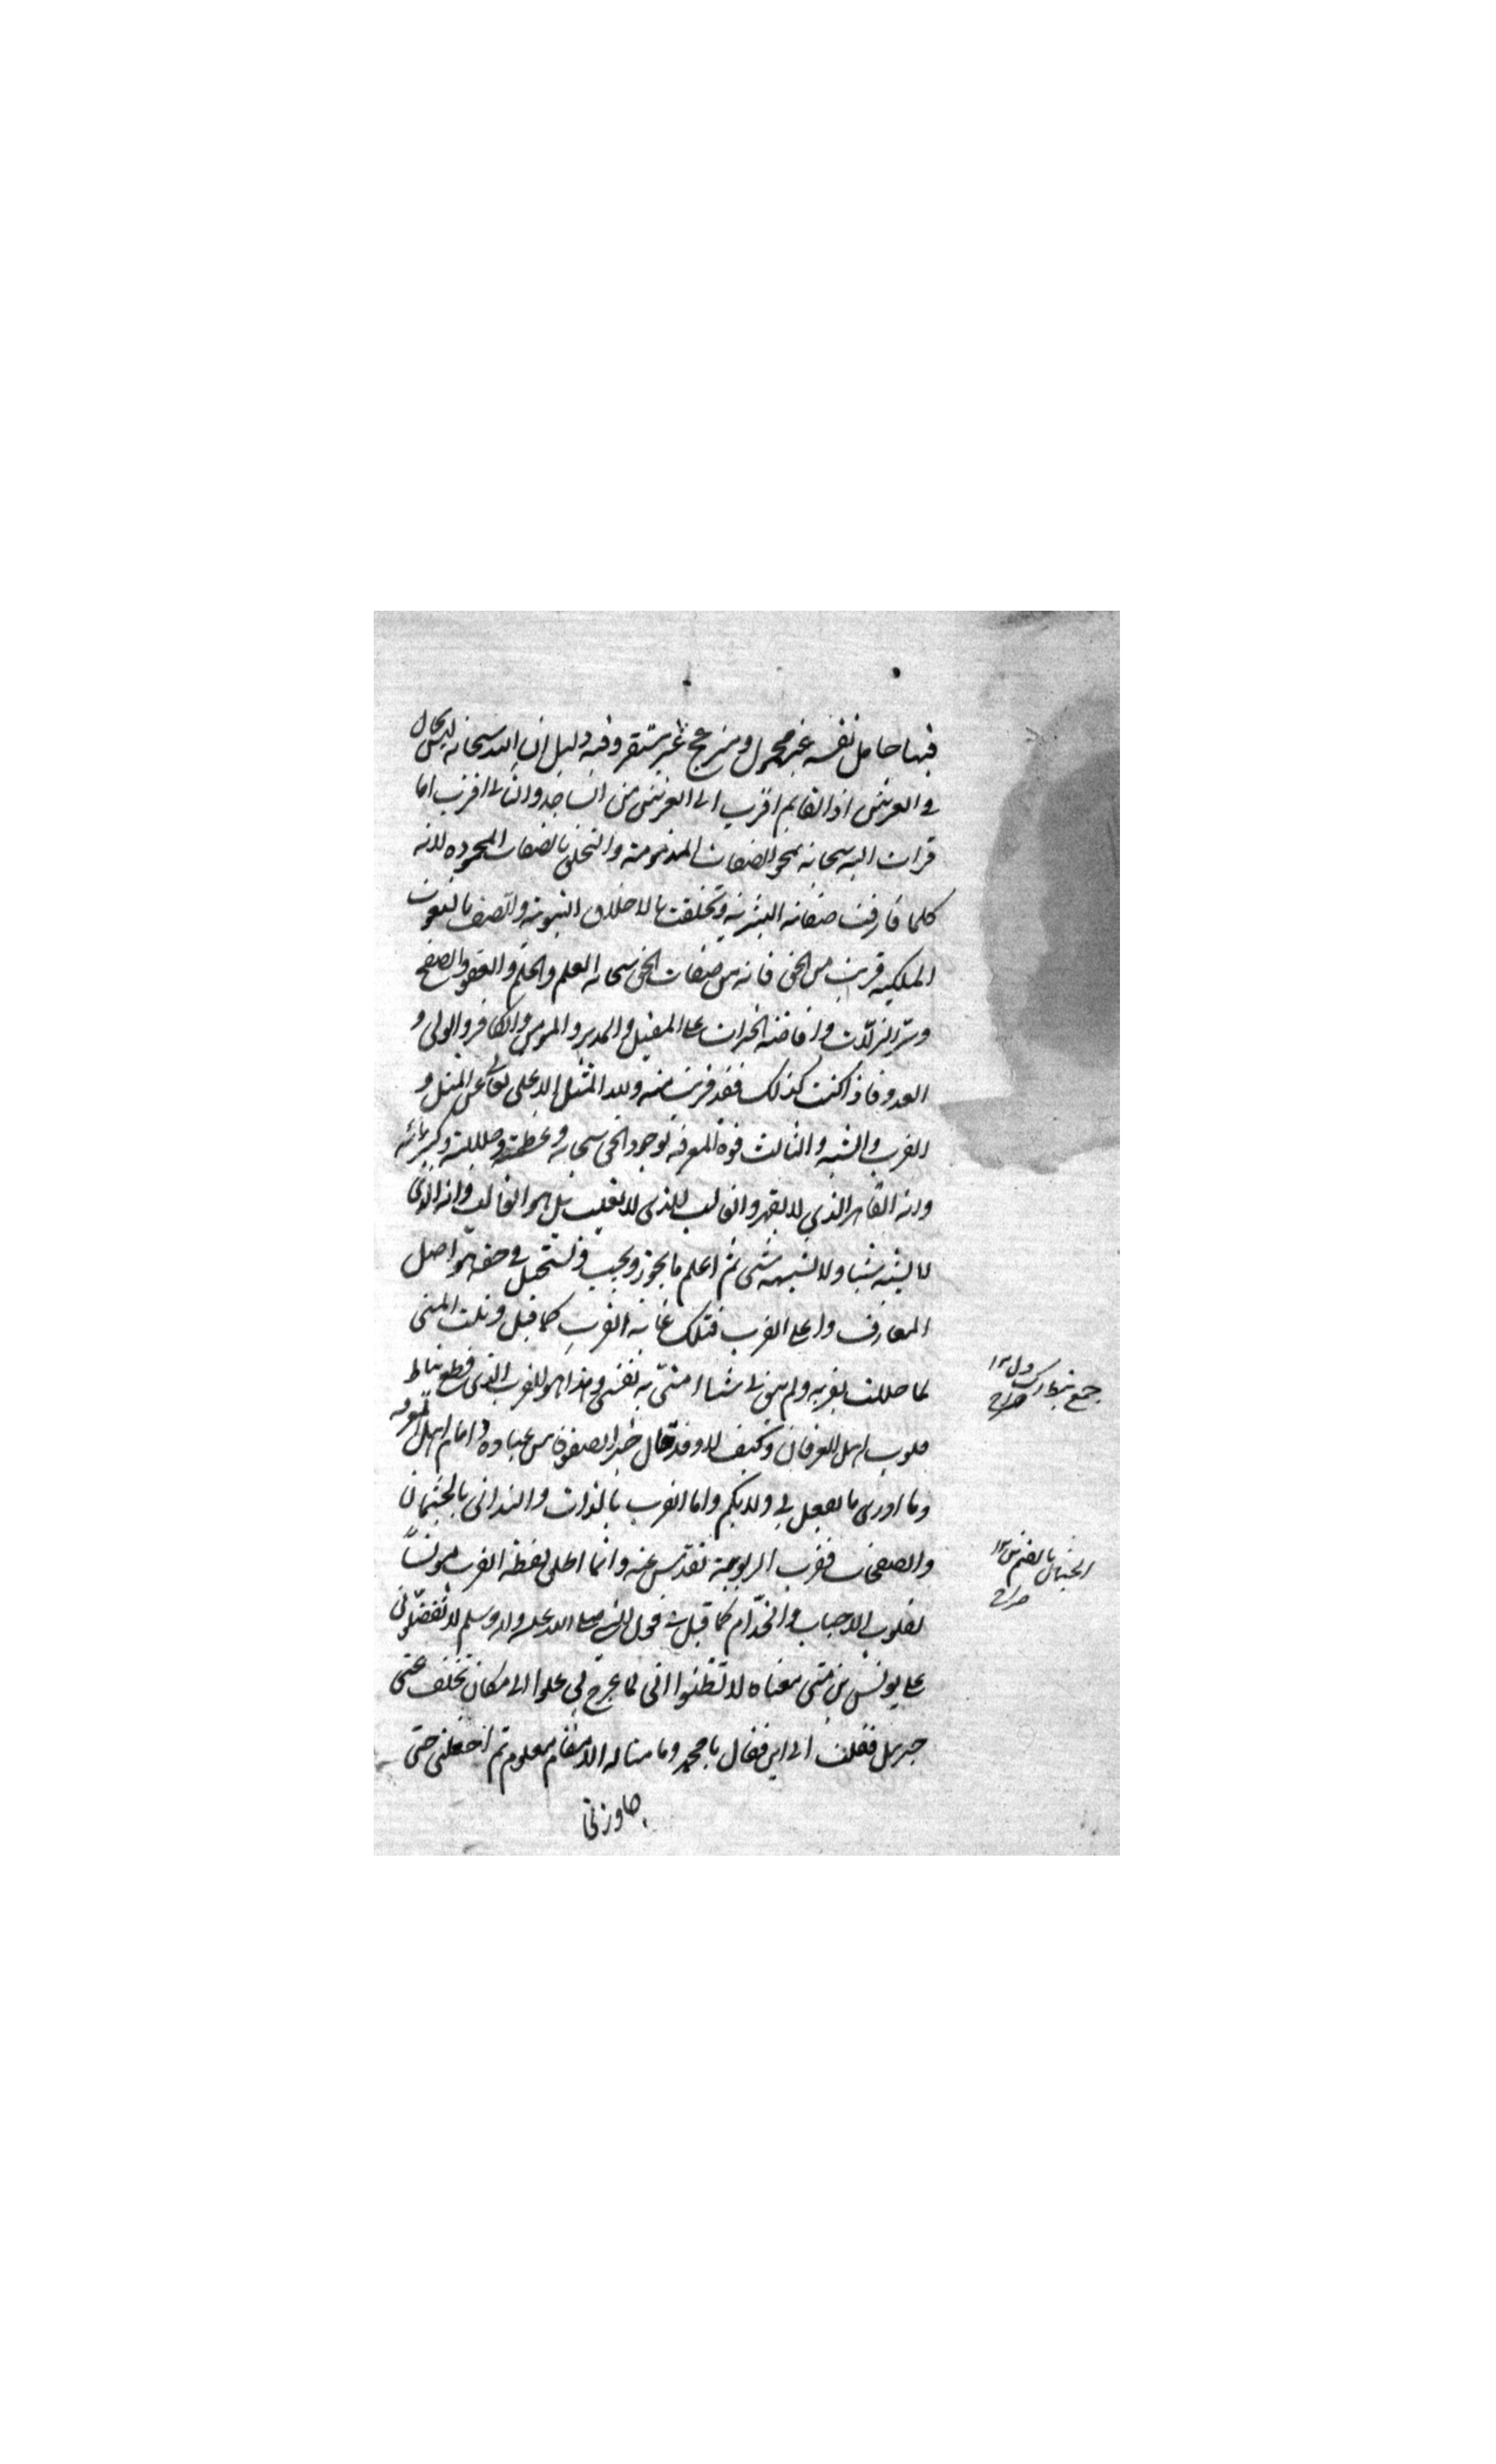 فيها حامل نفسه غير محمول ومنزعج غير مستقر وفيه دليل ان الله سبحانه ليس كل
في العرش اذ القايم اقرب الى العرش من الساجد والثانى اقرب اما
قرات الله سبحانه بمحو الصفات المذمومة والتخلق بالصفات المحموده لانه
كلما فارقت صفاته البشريه وتخلقت بالاخلاق النبويه واتصف بالنعوت
الملكيه قربت من الحق فانه من صفات الحق سبحانه العلم والحلم والعفو والصفح
وستر الزلات وافاضة الخيرات على المقبل والمدبر والمومن والكافر والولى و
العدو فاذا كنت كذلك فقد قربت منه ولله المثل الاعلى تعالى عن المثل و
القرب والشبه والثالث قوة المعرفة بوجود الحق سبحانه وعظمته وجلاله وكبريائه
وانه القاهر الذي لا يقهر والغالب الذى لا يغلب بل هو الغالب وانه الذى
لا يشبه شيئا ولا يشبهه شى ثم اعلم ما يجوز ويجب ويستحيل في حقه هو اصل
المعارف واعلى القرب فتلك غاية القرب كما قيل ونلت المنى
لما حللت بقربه ولم يبق لى شيئا امنّى به نفسى وهذا هو القرب الذى قطع نياط
قلوب اهل العرفان وكيف لا وقد قال خير الصفوة من عباده وامام اهل المعرفه
وما ادرى ما يفعل بى ولا بكم واما القرب بالذات والتدانى بالجثمان
والصفحات فقرب الربوبية تقدس عنه وانما اطلق لفظة القرب تمونسا
لقلوب الاحباب والخدّام كما قيل فى قول النبى صلى الله عليه واله وسلم لا تفضّلونى
على يونس بن متى معناه لا تظنوا انى لما عرج بى علوا الى مكان تخلف عنى
جبريل فقلت الى اين فقال يا محمد وما منا له الا مقام معلوم ثم
جاوزنى
جمع
صراح
الجثمان بالضم تن ١٢
صراح